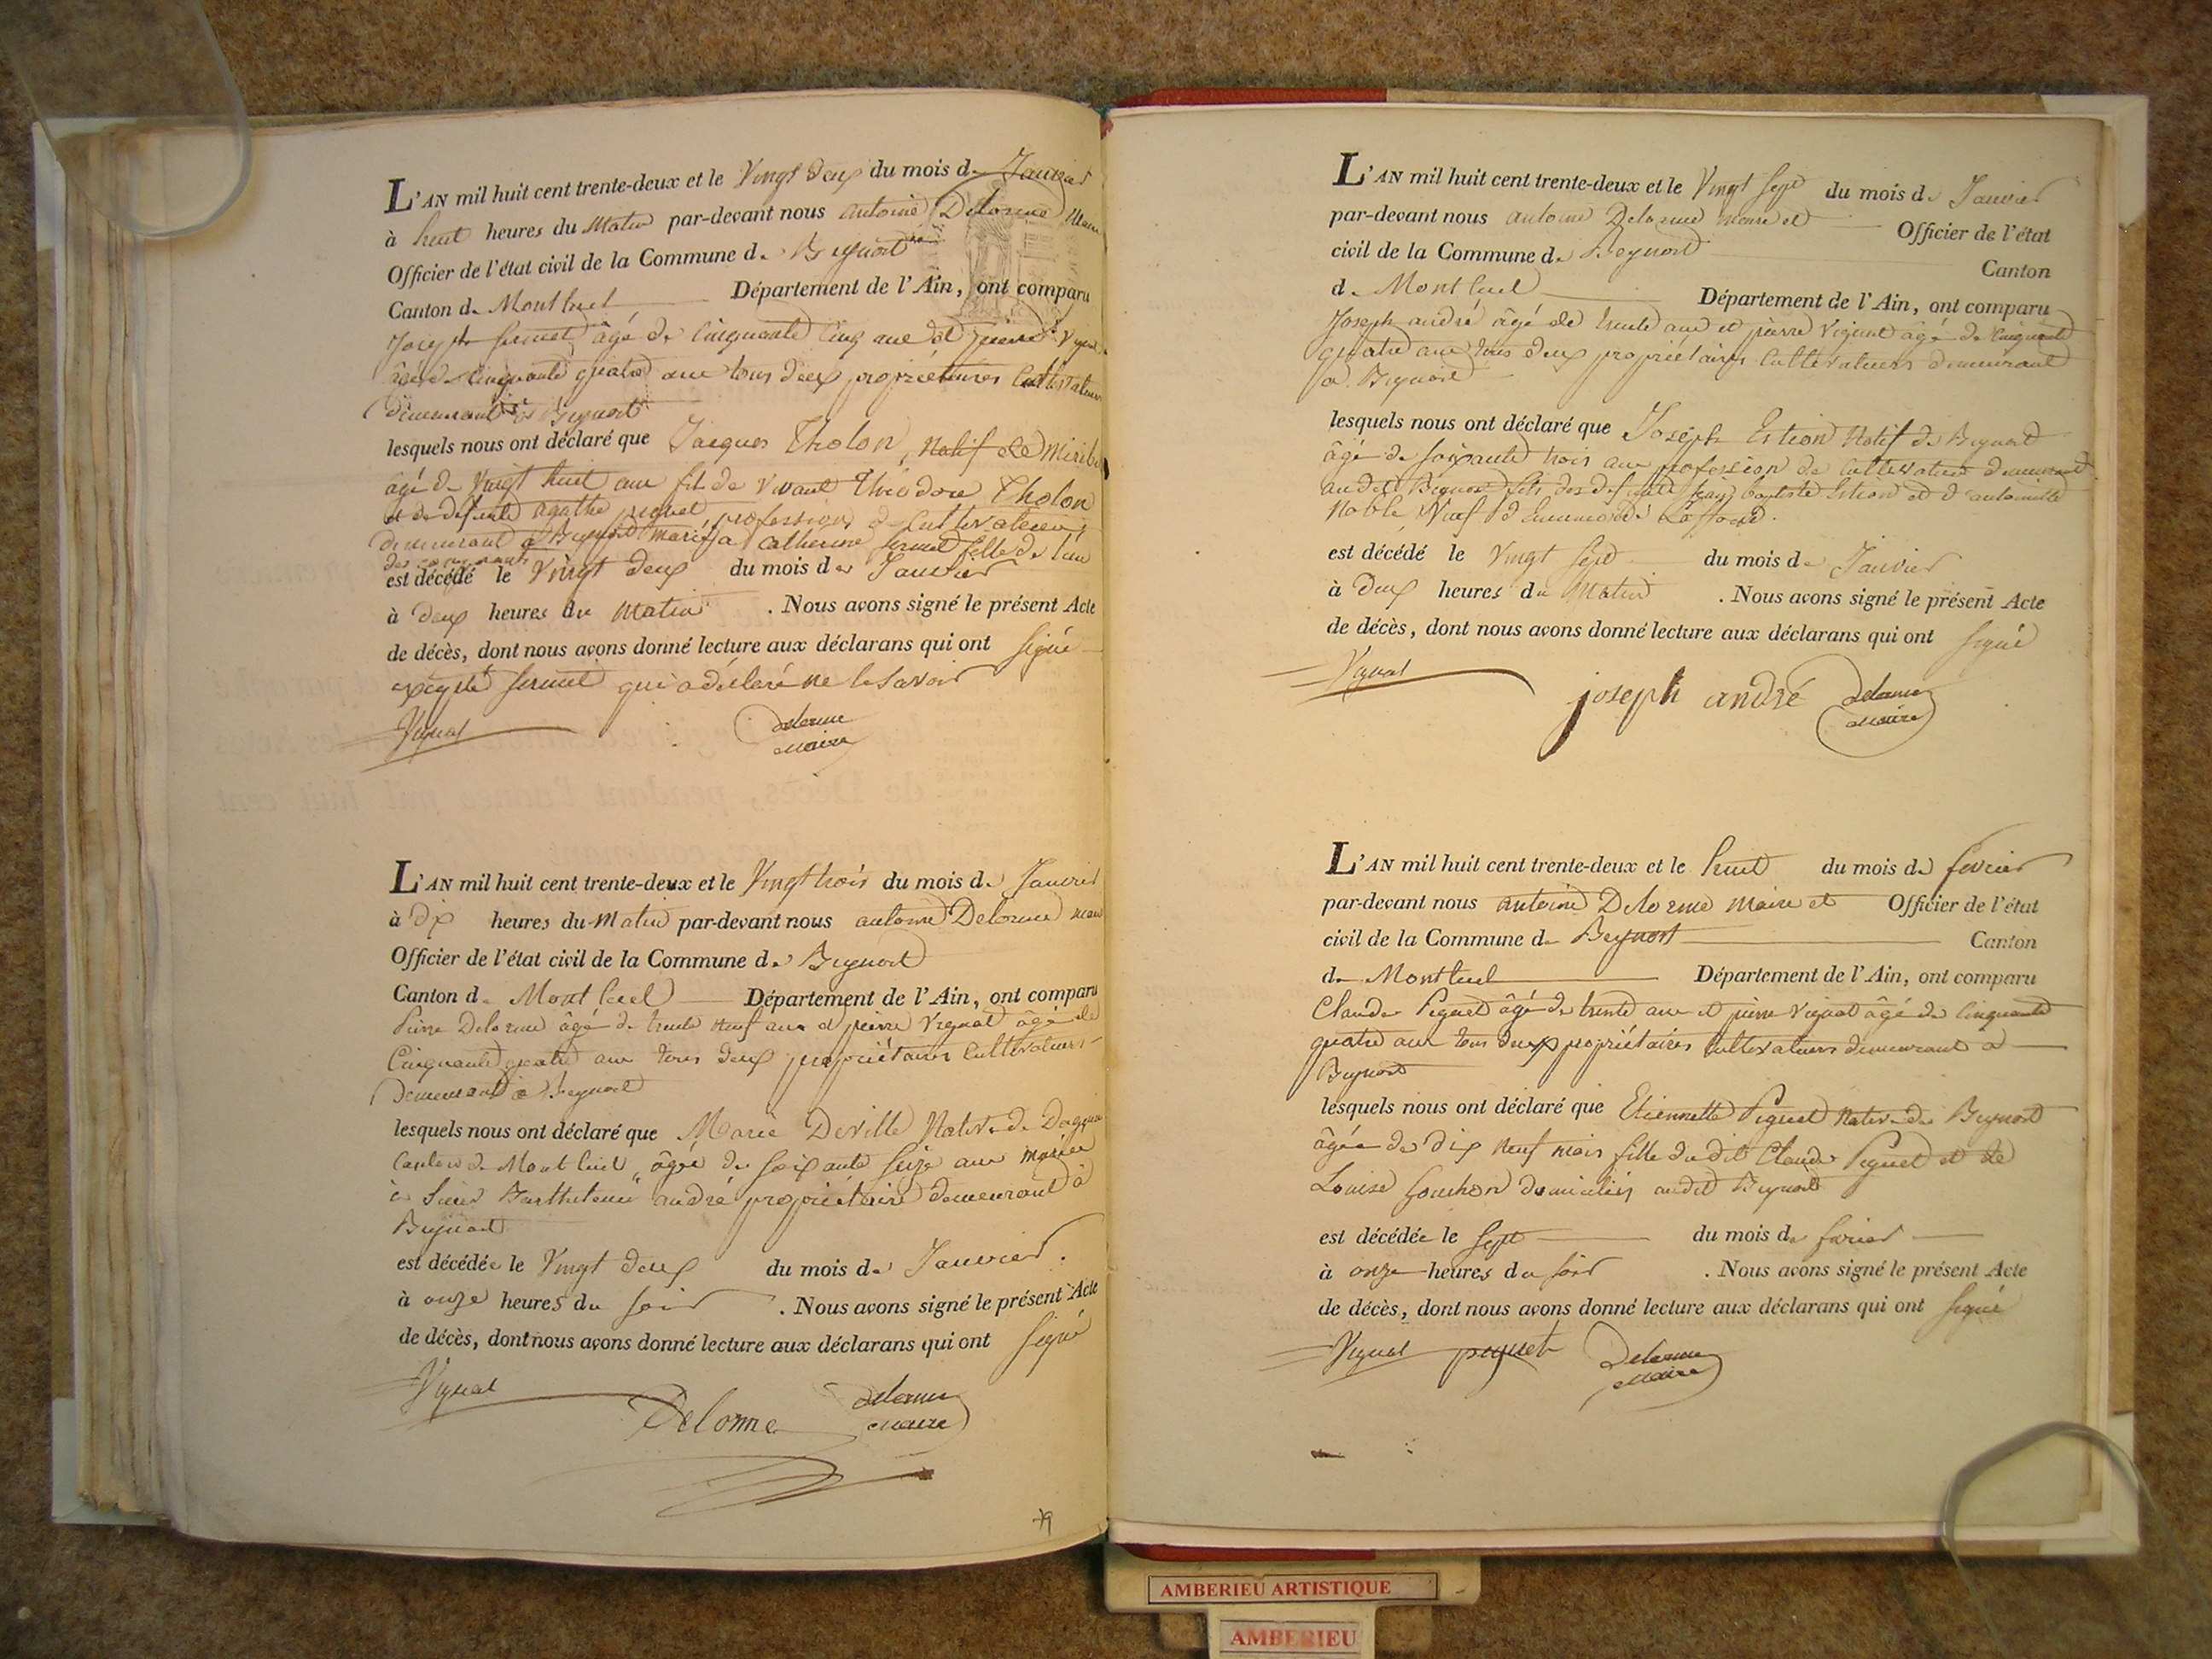 L'AN mil huit cent trente-deux et le Vingt deux du mois de Janvier
à huit heures du Matin par-devant nous antoine Delorme Maire
Officier de l'état civil de la Commune de Beynost
Canton de Montluel Département de l'Ain, ont comparu
Joseph fermet âgé de Cinquante Cinq ans et pierre Vignat
âgé de Cinquante quatre ans tous deux propriétaires Cultivateurs
demeurant à Beynost
lesquels nous ont déclaré que Jacques Tholon, Natif de Miribel
âgé de Vingt huit ans fils de Vivant Théodore Tholon
et de defunte agathe piquet profession de Cultivateur
demeurant à Beynost marié a Catherine fermet fille de l'un
des comparants
est décédé le Vingt deux du mois de Janvier
à deux heures du Matin . Nous avons signé le présent Acte
de décès, dont nous avons donné lecture aux déclarans qui ont signé
excepté fermet qui a déclaré ne le savoir
Vignat delorme
maire
L'AN mil huit cent trente-deux et le Vingt trois du mois de Janvier
à dix heures du Matin par-devant nous antoine Delorme maire
Officier de l'état civil de la Commune de Beynost
Canton de Montluel Département de l'Ain, ont comparu
Pierre Delorme âgé de trente neuf ans et pierre Vignat âgé de
Cinquante quatre ans tous deux propriétaires Cultivateurs
demeurant à Beynost
lesquels nous ont déclaré que Marie Deville Native de
Canton de Montluel, âgée de soixante seize ans mariée
à Sieur Barthelemi andré propriétaire demeurant à
Beynost
est décédée le Vingt deux du mois de Janvier.
à onze heures du soir . Nous avons signé le présent Acte
de décès, dont nous avons donné lecture aux déclarans qui ont signé
Vignat Delorme delorme
maire
L'AN mil huit cent trente-deux et le Vingt sept du mois de Janvier
par-devant nous antoine Delorme maire et Officier de l'état
civil de la Commune de Beynost Canton
de Montluel Département de l'Ain, ont comparu
Joseph andré âgé de trente ans et pierre Vignat âgé de Cinquante
quatre ans tous deux propriétaires Cultivateurs demeurant
à Beynost
lesquels nous ont déclaré que Joseph Estion Natif de Beynost
âgé de soixante trois ans profession de Cultivateur demeurant
audit Beynost fils des defunts jean baptiste Estion et d'antoinette
Noble Veuf
est décédé le Vingt sept du mois de Janvier
à Deux heures du Matin . Nous avons signé le présent Acte
de décès, dont nous avons donné lecture aux déclarans qui ont signé
Vignat joseph andré delorme
maire
L'AN mil huit cent trente-deux et le huit du mois de fevrier
par-devant nous antoine Delorme maire et Officier de l'état
civil de la Commune de Beynost Canton
de Montluel Département de l'Ain, ont comparu
Claude Piquet âgé de trente ans et pierre Vignat âgé de Cinquante
quatre ans tous deux propriétaires Cultivateurs demeurant à
Beynost
lesquels nous ont déclaré que Etiennette Piquet Native de Beynost
âgée de dix neuf mois fille dudit Claude Piquet et de
Louise fouchon domiciliés audit Beynost
est décédée le sept du mois de fevrier
à onze heures du soir . Nous avons signé le présent Acte
de décès, dont nous avons donné lecture aux déclarans qui ont signé
Vignat piquet delorme
maire
AMBERIEU ARTISTIQUE
AMBERIEU